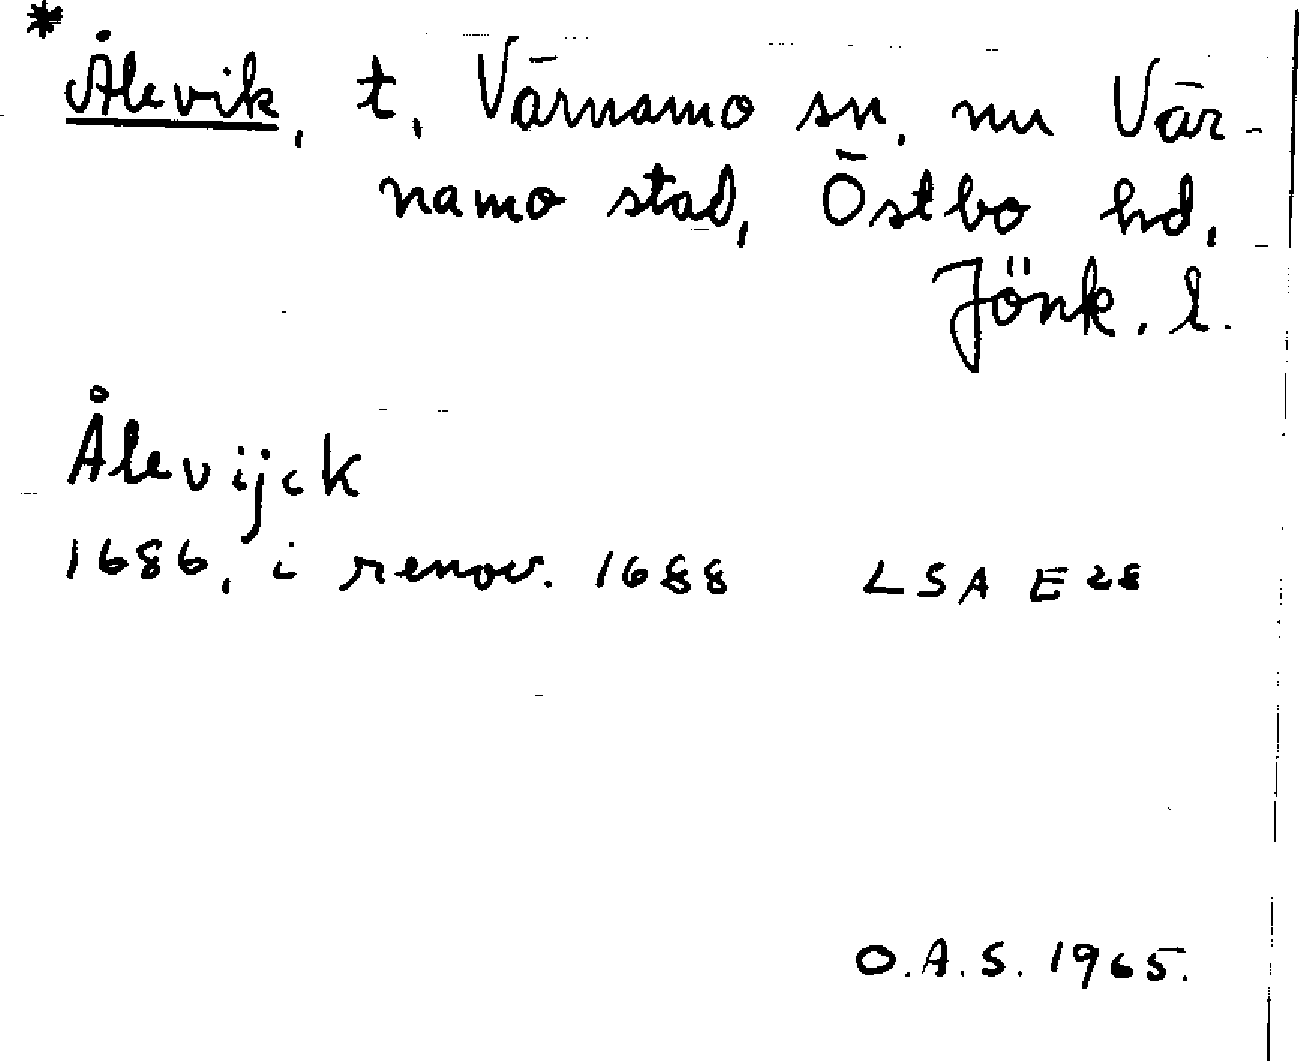 *
Ålevik, t, Värnamo sn, nu Vär-
namo stad, Östbo hd,
Jönk. l.
Ålevijck
1686, i renov. 1688 LSA E 28
O.A.S. 1965.